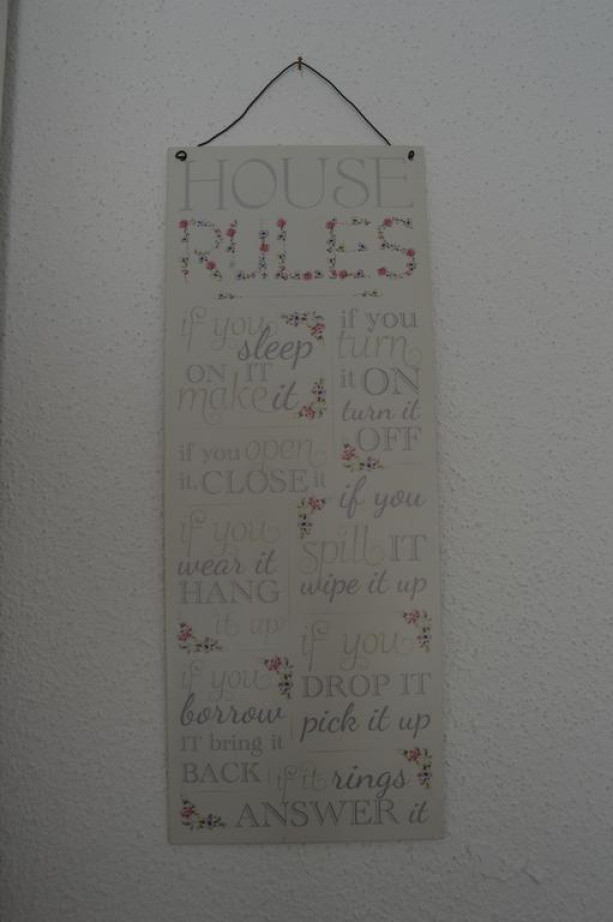 HOUSE
RULES
if you
sleep
ON IT
make it
if you
turn
it ON
turn it
OFF
if you open
it, CLOSE it
if you
wear it
HANG
it up
if you
spill IT
wipe it up
if you
borrow
IT bring it
BACK
if you
DROP IT
pick it up
if it rings
ANSWER it